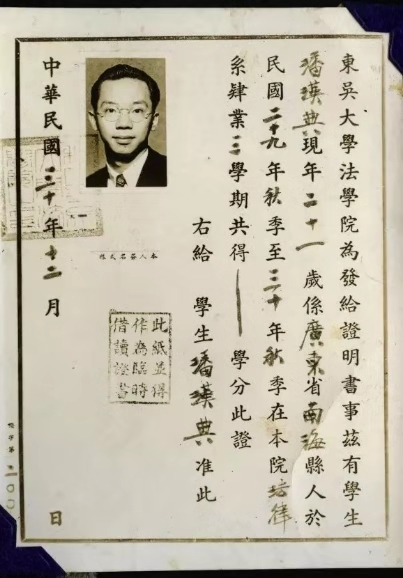 東吳大學法學院為發給證明書事茲有學生
潘漢典現年二十一歲係廣東省南海縣人於
民國二十九年秋季至三十年秋季在本院法律
系肄業三學期共得 學分此證
右給 學生潘漢典准此
本人簽名式樣
此紙並得
作為臨時
借讀證書
中華民國三十年十二月 日